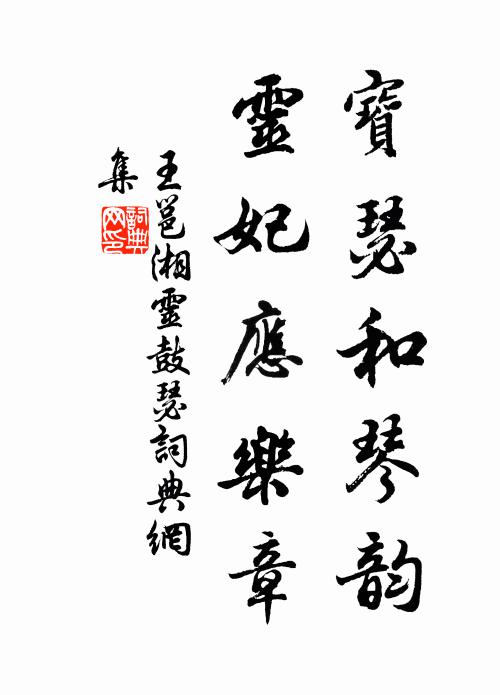 寶瑟和琴韵
靈妃應樂章
王邕湘靈鼓瑟詞典網
集
詞典网印